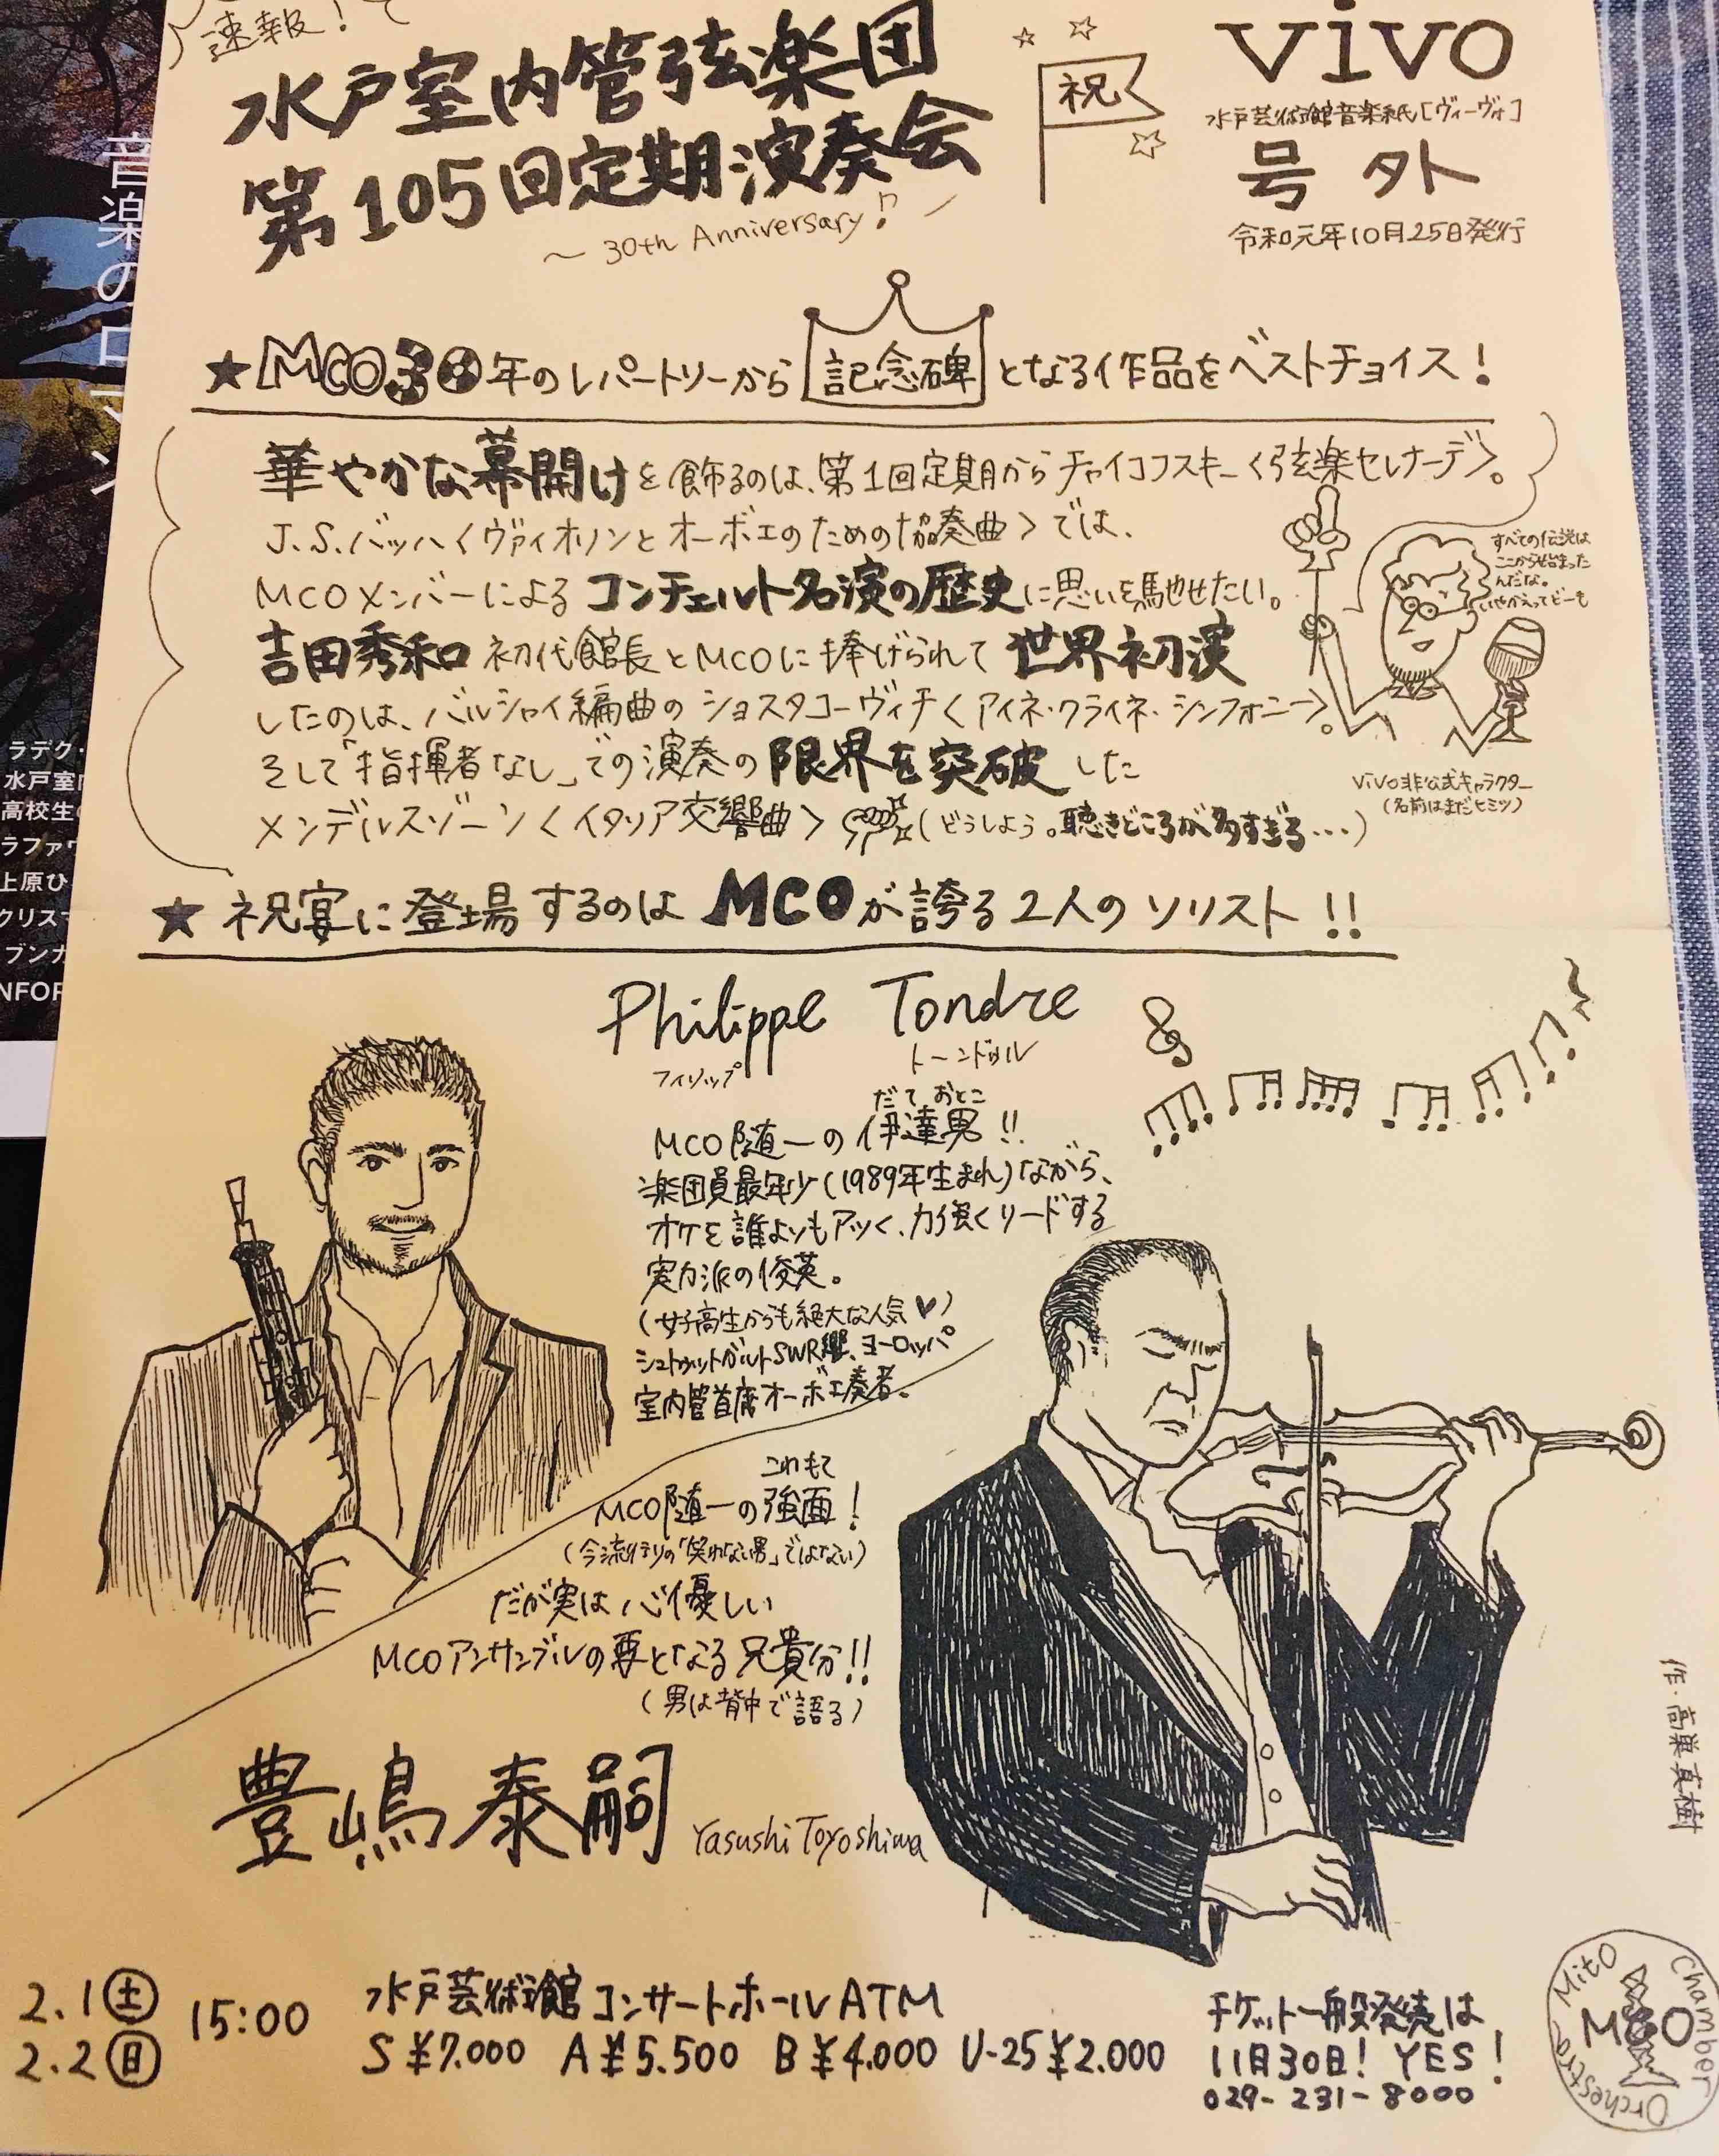 速報!
水戸室内管弦楽団
第105回定期演奏会
～30th Anniversary♪
祝
vivo
水戸芸術館音楽紙[ヴィーヴォ]
号外
令和元年10月25日発行
★MCO30年のレパートリーから記念碑となる作品をベストチョイス!
華やかな幕開けを飾るのは、第1回定期からチャイコフスキー〈弦楽セレナーデ〉。
J.S.バッハ〈ヴァイオリンとオーボエのための協奏曲〉では、
MCOメンバーによるコンチェルト名演の歴史に思いを馳せたい。
吉田秀和初代館長とMCOに捧げられて世界初演
したのは、バルシャイ編曲のショスタコーヴィチ〈アイネ・クライネ・シンフォニー〉。
そして「指揮者なし」での演奏の限界を突破した
メンデルスゾーン〈イタリア交響曲〉(どうしよう。聴きどころが多すぎる…)
すべての伝説は
ここから始まった
んだな。
vivo非公式キャラクター
(名前はまだヒミツ)
★祝宴に登場するのはMCOが誇る2人のソリスト!!
Philippe Tondre
フィリップ トーンドゥル
だておとこ
MCO随一の伊達男!!
楽団員最年少(1989年生まれ)ながら、
オケを誰よりもアツく、力強くリードする
実力派の俊英。
(女子高生からも絶大な人気♥)
シュトゥットガルトSWR響、ヨーロッパ
室内管首席オーボエ奏者。
これもて
MCO随一の強面!
(今流行りの「笑わない男」ではない)
だが実は心優しい
MCOアンサンブルの要となる兄貴分!!
(男は背中で語る)
豊嶋泰嗣 Yasushi Toyoshima
作・高巣真樹
2.1(土)
2.2(日)
15:00
水戸芸術館コンサートホールATM
S¥7.000 A¥5.500 B¥4.000 U-25¥2.000
チケット一般発売は
11月30日! YES!
029-231-8000
Mito Chamber Orchestra
MCO
音楽のロマン
ラデク・
水戸室内
高校生の
ラファウ
上原ひ
クリスマ
ブンカ
INFOR